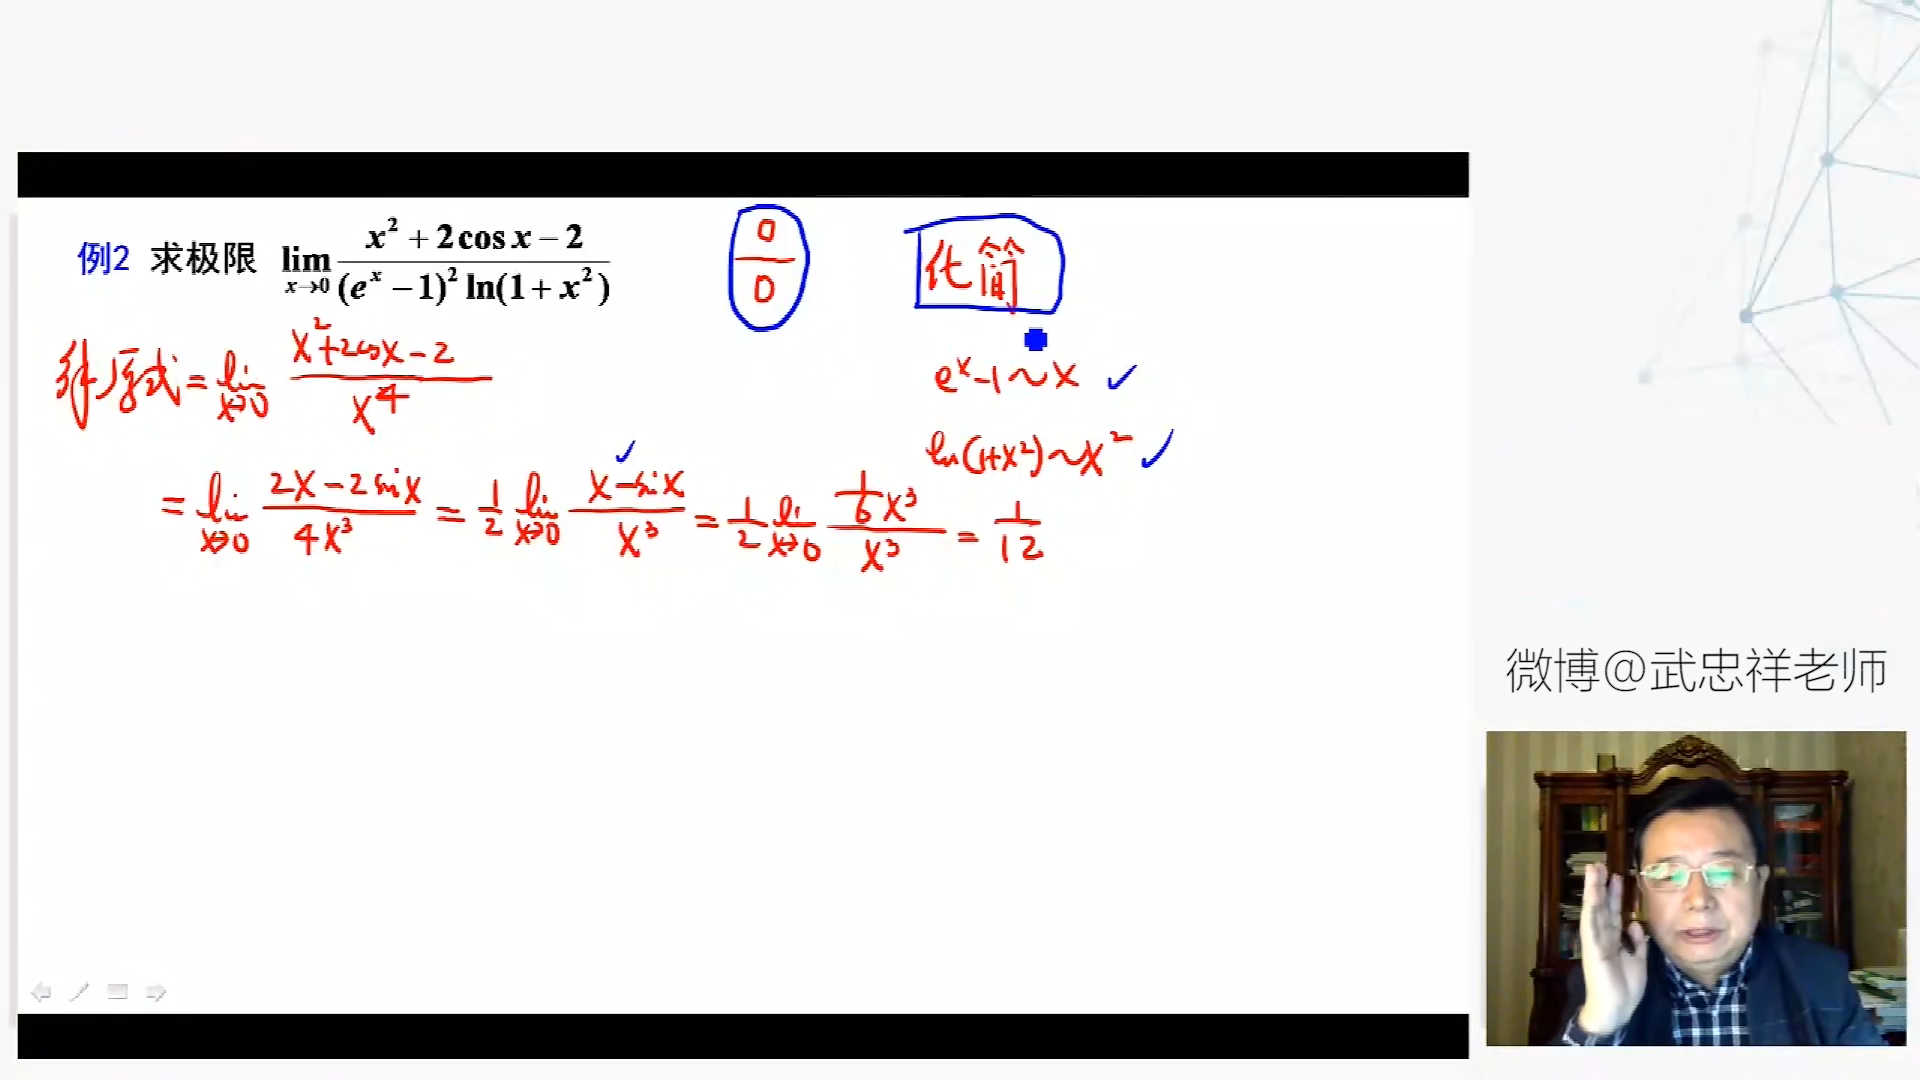 例2 求极限 lim x→0 (x² + 2cos x − 2) / ((eˣ − 1)² ln(1 + x²))
0/0
化简
解 原式 = lim x→0 (x²+2cosx−2) / x⁴
eˣ−1∼x ✓
ln(1+x²)∼x² ✓
= lim x→0 (2x−2sinx) / 4x³ = 1/2 lim x→0 (x−sinx) / x³ = 1/2 lim x→0 (1/6 x³) / x³ = 1/12
微博@武忠祥老师